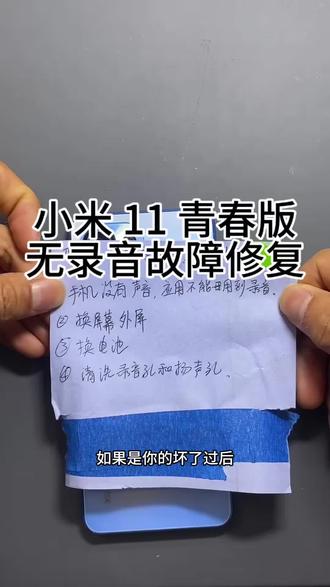 小米 11 青春版
无录音故障修复
手机没有声音，应用不能用到录音。
② 换屏幕外屏
③ 换电池
④ 清洗录音孔和扬声孔.
如果是你的坏了过后